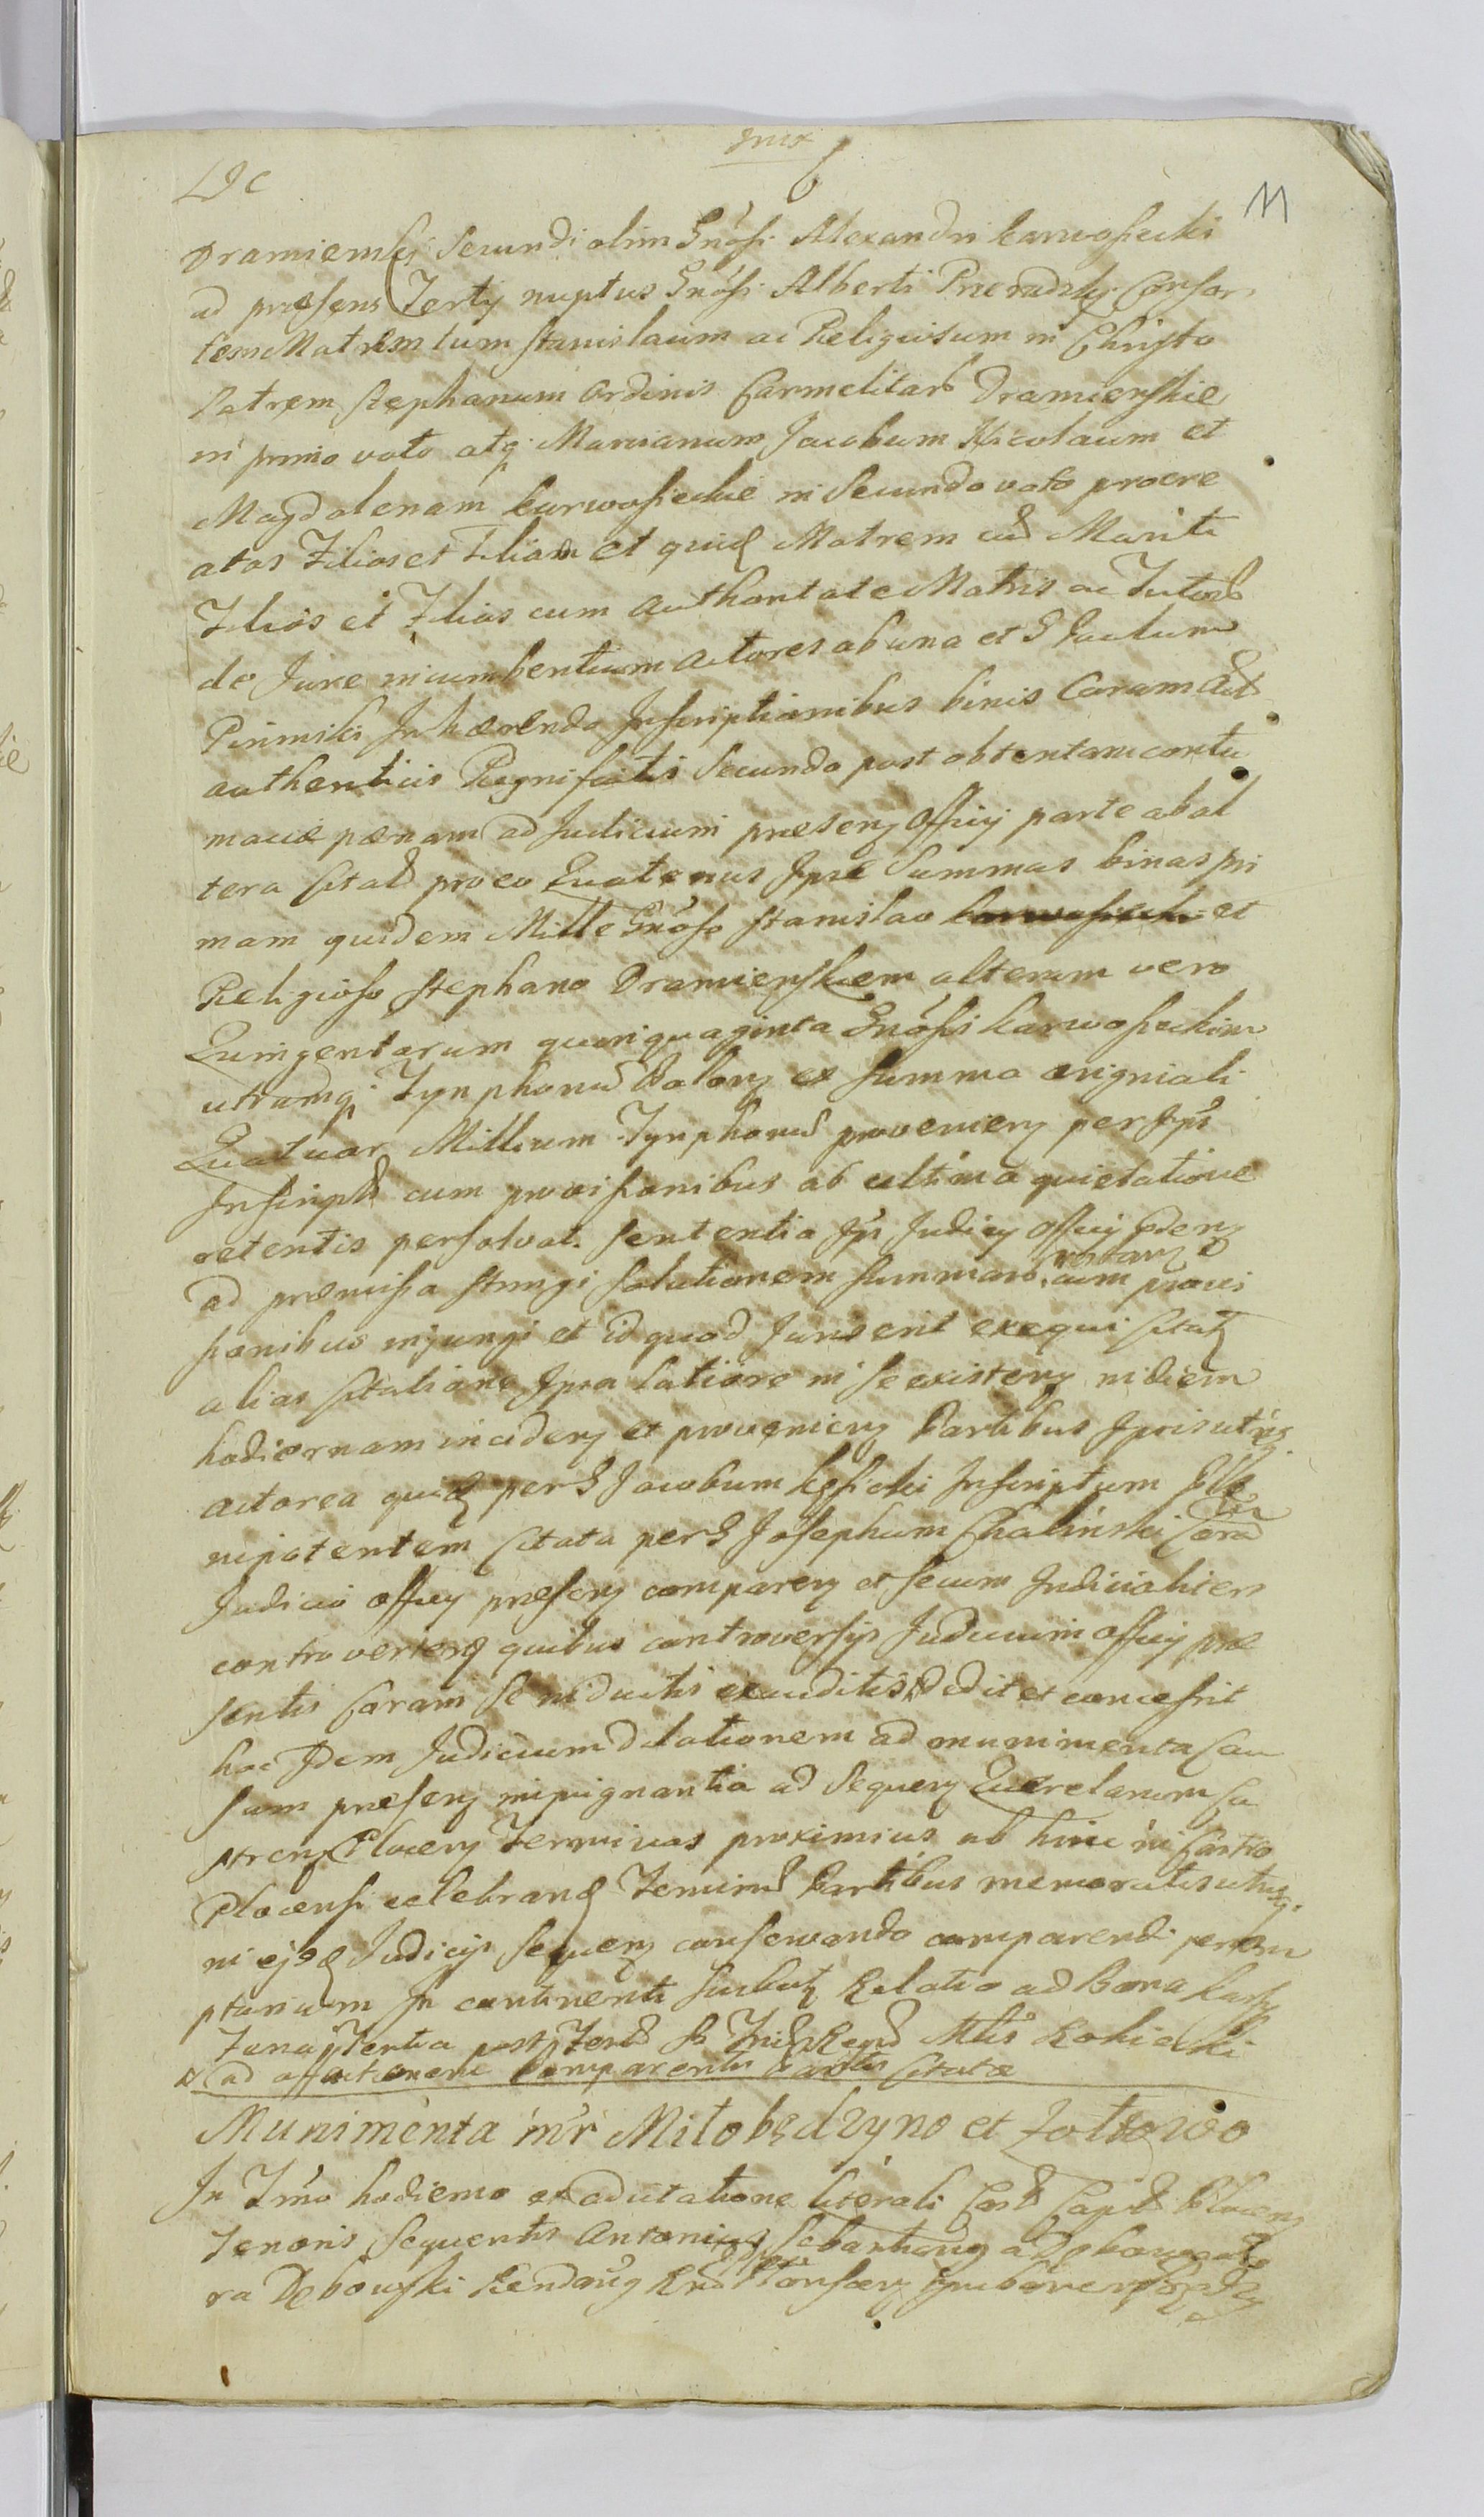 11
Dramienskj Secundi olim Gnosi Alexandri Karwosiecki
ad præsens Tertij nuptus Gnosi Alberti Consor
tem Matrem tum Stanislaum ac Religiosum in Christo
Patrem Stephanum Ordinis Carmelitarū Dramienskie
in primo voto atq Marianum Jacobum Nicolaum et
Magdalenam Karwosieckie in Secundo voto procre
atos Filios et Filiam et quid Matrem cū Mariti
Filios et Filias cum Authoritate Matris ac Tutorū
de Jure incumbentium Actores ab una et G Paulum
Piriński Inhærendo Inscriptionibus binis Coram Act
authenticis Regni factis Secundo post obtentam contu
maciæ pœnam ad Judicium præsenz Officij parte ab al
tera Citat pro eo Quatenus Ipse Summas binas pri
mam quidem Mille Gnoso Stanislao Karwosiecki et
Religioso Stephano Dramienskiem alteram vero
Quingentarum quinquaginta Gnosi Karwosieckim
utramq Tynphonū Valorz ex Summa originali
Quatuor Millium Tynphonū provenienz per Ips
Inscripts cum provisionibus ab ultima quietatione
retentis persolvat. Sententia Ips Judicij Officij
ad præmissa stringi solutionem summarū cum provi
sionibus injungi et id quod Juris erit exequi Citatz
alias Citatione Ipsa latiore in se existenz in diem
hodiernam incidenz et provenienz Partibus Ipsis utrisq
actorea quid per G Jacobum Kęsicki Inscriptum Ple
nipotentem Citata per G Josephum Chaliński Corā
Judicio Officij præsenz comparenz et secum Judicialiter
controvertenz quibus controversijs Judicium Officij præ
sentis Coram se inductis exauditis, dedit et concessit
hoc Idem Judicium dilationem ad munimenta Cau
sam præsenz impugnantia ad Sequenz Querelarum Ca
strenz Plocenz Terminos proximius ab hinc in Castro
Plocensi celebrand Terminū Partibus memoratis utrisq
in ejsd Judicijs Sequenz conservando comparendi perem
ptorium In continenti Relatio ad Bona
Tertia post Rokicki
ad affectationem Comparentis Partis Citatæ
Munimenta inr Miłobędzyno et Żołtowo
In Trno hodierno ex adcitatione literali Cast Capit Plocenz
Tenoris Sequentis Antonius Sebastianz
ra Dębowski